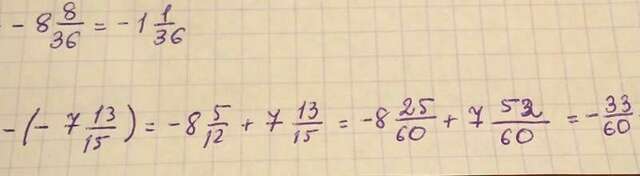 - 8 8/36 = -1 1/36
- (- 7 13/15) = -8 5/12 + 7 13/15 = -8 25/60 + 7 52/60 = - 33/60